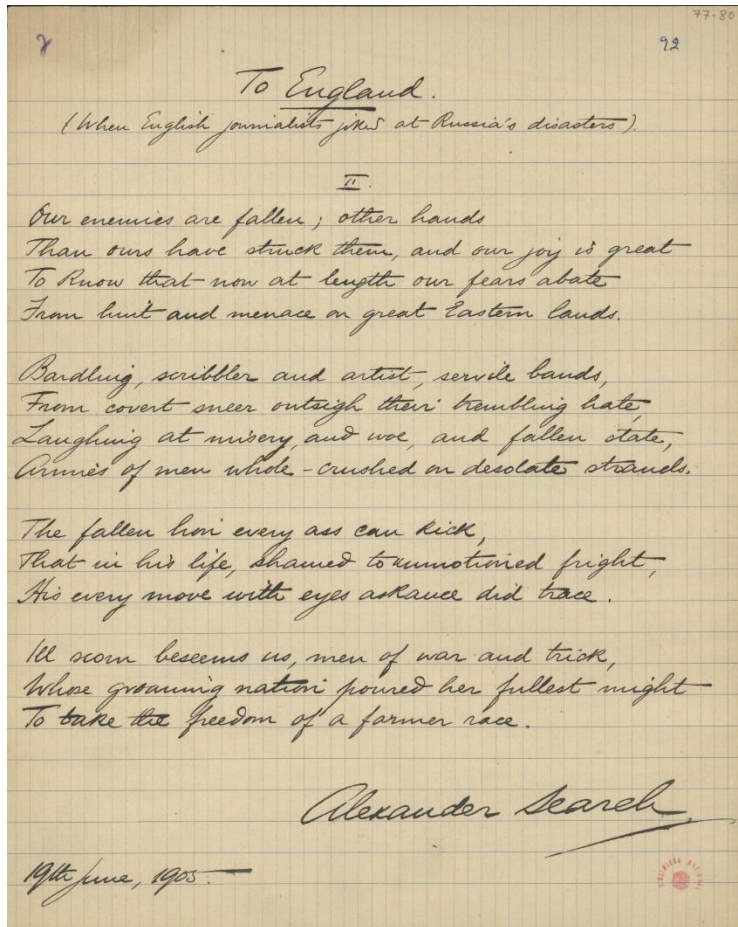 77-80
92
To England.
(When English journalists joked at Russia's disasters).
II.
Our enemies are fallen; other hands
Than ours have struck them, and our joy is great
To know that now at length our fears abate
From hurt and menace on great Eastern lands.
Bardling, scribbler and artist, servile bands,
From covert sneer outsigh their trembling hate,
Laughing at misery, and woe, and fallen state,
Armies of men whole-crushed on desolate strands.
The fallen lion every ass can kick,
That in his life, shamed to unmotioned fright,
His every move with eyes askance did trace.
Ill scorn beseems us, men of war and trick,
Whose groaning nation poured her fullest might
To take the freedom of a farmer race.
Alexander Search.
19th June, 1905.